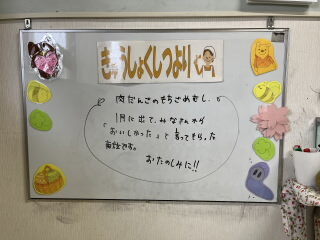 きゅうしょくしつより
肉だんごのもちごめむし、
1月に出て、みなさんから
「おいしかった」と言ってもらった
献立です。
おたのしみに!!